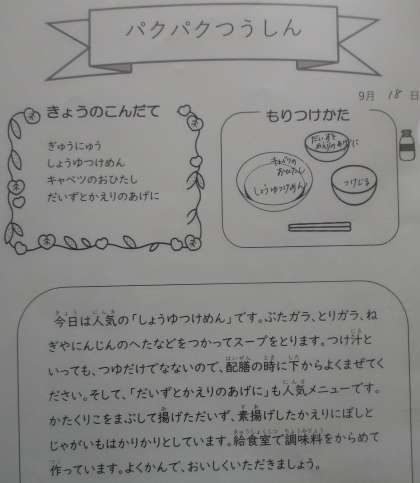 パクパクつうしん
9月 18 日
きょうのこんだて
ぎゅうにゅう
しょうゆつけめん
キャベツのおひたし
だいずとかえりのあげに
もりつけかた
だいずと
かえりのあげに
キャベツの
おひたし
しょうゆつけめん
つけじる
今日は人気の「しょうゆつけめん」です。ぶたガラ、とりガラ、ね
ぎやにんじんのへたなどをつかってスープをとります。つけ汁と
いっても、つゆだけでなないので、配膳の時に下からよくまぜてく
ださい。そして、「だいずとかえりのあげに」も人気メニューです。
かたくりこをまぶして揚げただいず、素揚げしたかえりにぼしと
じゃがいもはかりかりとしています。給食室で調味料をからめて
作っています。よくかんで、おいしくいただきましょう。